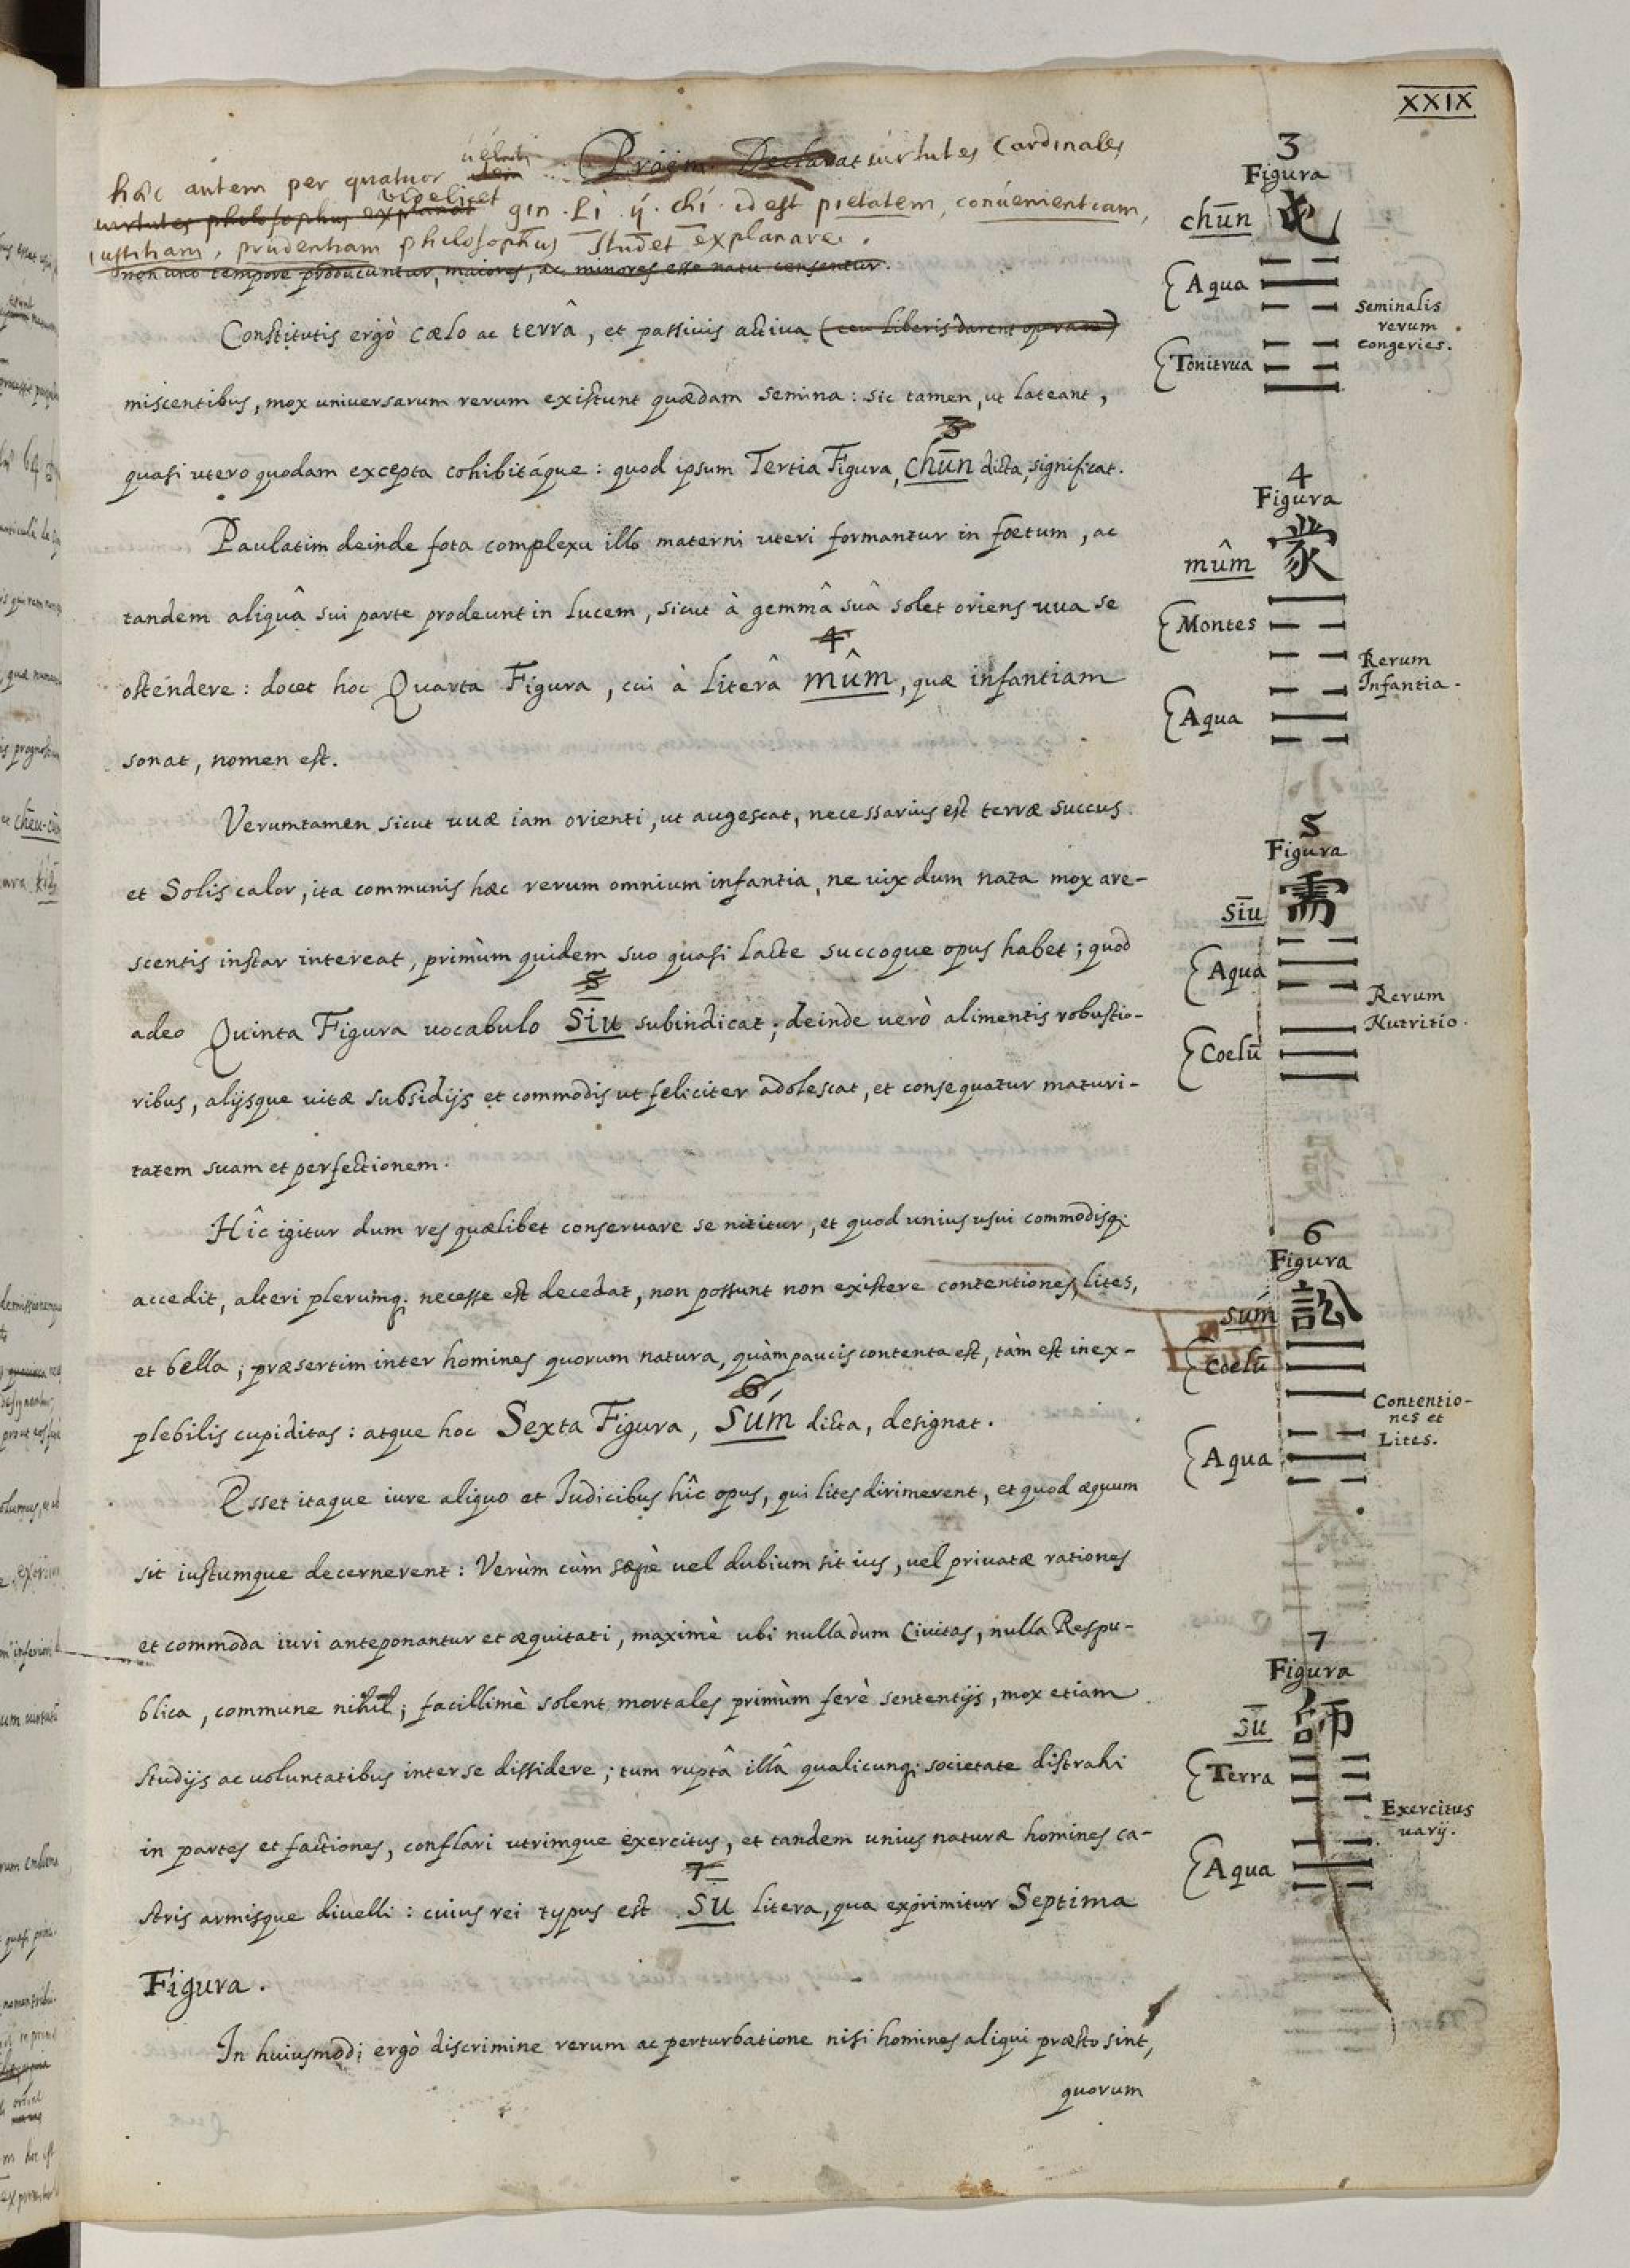 XXIX
hâc autem per quatuor veluti virtutes Cardinales
virtutes philosophus explanat videlicet gin. li. ý. chí. id est pietatem, convenientiam,
iustitiam, prudentiam philosophus studet explanare.
non uno tempore producuntur, maiores, ac minores esse natu censentur.
Constitutis ergò cælo ac terrâ, et passivis activa (ceu liberis darent operam)
miscentibus, mox universarum rerum existunt quædam semina: sic tamen, ut lateant,
3
quasi utero quodam excepta cohibitáque: quod ipsum Tertia Figura, chūn dicta, significat.
Paulatim deinde fota complexu illo materni uteri formantur in fœtum, ac
tandem aliquâ sui parte prodeunt in lucem, sicut à gemmâ suâ solet oriens uua se
4
ostendere: docet hoc Quarta Figura, cui à literâ mûm, quæ infantiam
sonat, nomen est.
Verumtamen sicut uuæ iam orienti, ut augescat, necessarius est terræ succus
et Solis calor, ita communis hæc rerum omnium infantia, ne vix dum nata mox are-
scentis instar intereat, primùm quidem suo quasi lacte succoque opus habet; quod
5
adeo Quinta Figura uocabulo Siū subindicat; deinde uerò alimentis robustio-
ribus, alijsque uitæ subsidijs et commodis ut feliciter adolescat, et consequatur maturi-
tatem suam et perfectionem.
Hîc igitur dum res quælibet conseruare se nititur, et quod unius usui commodisq;
accedit, alteri plerumq; necesse est decedat, non possunt non existere contentiones, lites,
et bella; præsertim inter homines quorum natura, quàm paucis contenta est, tàm est inex-
6
plebilis cupiditas: atque hoc Sexta Figura, Súm dicta, designat.
Esset itaque iure aliquo et Iudicibus hîc opus, qui lites dirimerent, et quod æquum
sit iustumque decernerent: Verùm cùm sæpè uel dubium sit ius, uel priuatæ rationes
et commoda iuri anteponantur et æquitati, maximè ubi nulla dum Ciuitas, nulla Respu-
blica, commune nihil; facillimè solent mortales primùm ferè sententijs, mox etiam
studijs ac uoluntatibus inter se dissidere; tum ruptâ illâ qualicunq; societate distrahi
in partes et factiones, conflari utrimque exercitus, et tandem unius naturæ homines ca-
7
stris armisque diuelli: cuius rei typus est Sū litera, qua exprimitur Septima
Figura.
In huiusmodi ergò discrimine rerum ac perturbatione nisi homines aliqui præsto sint,
quorum
3
Figura
chūn 屯
Aqua
Seminalis
rerum
congeries.
Tonitrua
4
Figura
mûm 蒙
Montes
Rerum
Infantia.
Aqua
5
Figura
Siū 需
Aqua
Rerum
Nutritio.
Coelū
6
Figura
súm 訟
Coelū
Contentio-
nes et
Lites.
Aqua
7
Figura
sū 師
Terra
Exercitus
uarij.
Aqua